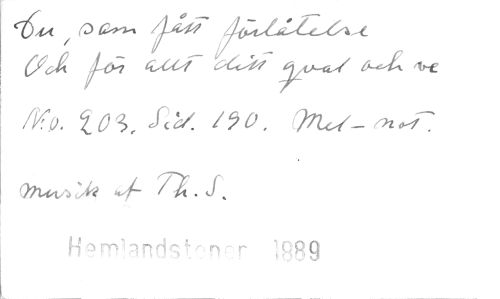 Du, som fått förlåtelse
Och för allt ditt qval och ve
N:o. 203. Sid. 190. Mel-not.
musik af Th. S.
Hemlandstoner 1889